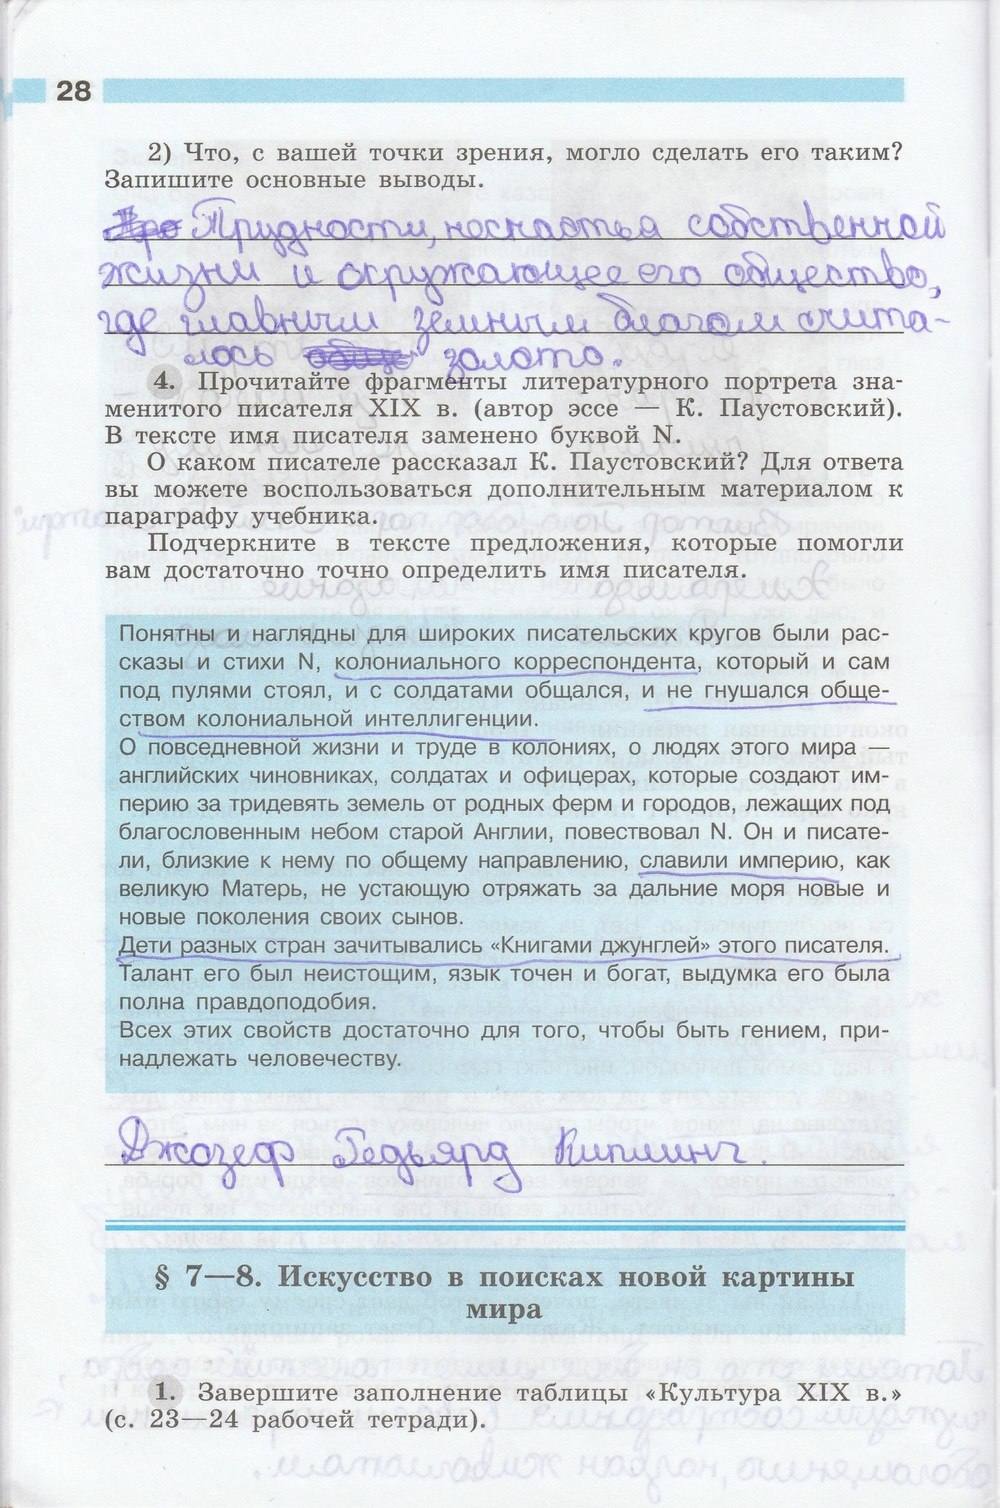 28
2) Что, с вашей точки зрения, могло сделать его таким?
Запишите основные выводы.
Трудности, несчастья собственной
жизни и окружающее его общество,
где главным земным благом счита-
лось золото.
4. Прочитайте фрагменты литературного портрета зна-
менитого писателя XIX в. (автор эссе — К. Паустовский).
В тексте имя писателя заменено буквой N.
О каком писателе рассказал К. Паустовский? Для ответа
вы можете воспользоваться дополнительным материалом к
параграфу учебника.
Подчеркните в тексте предложения, которые помогли
вам достаточно точно определить имя писателя.
Понятны и наглядны для широких писательских кругов были рас-
сказы и стихи N, колониального корреспондента, который и сам
под пулями стоял, и с солдатами общался, и не гнушался обще-
ством колониальной интеллигенции.
О повседневной жизни и труде в колониях, о людях этого мира —
английских чиновниках, солдатах и офицерах, которые создают им-
перию за тридевять земель от родных ферм и городов, лежащих под
благословенным небом старой Англии, повествовал N. Он и писате-
ли, близкие к нему по общему направлению, славили империю, как
великую Матерь, не устающую отряжать за дальние моря новые и
новые поколения своих сынов.
Дети разных стран зачитывались «Книгами джунглей» этого писателя.
Талант его был неистощим, язык точен и богат, выдумка его была
полна правдоподобия.
Всех этих свойств достаточно для того, чтобы быть гением, при-
надлежать человечеству.
Джозеф Редьярд Киплинг.
§ 7—8. Искусство в поисках новой картины
мира
1. Завершите заполнение таблицы «Культура XIX в.»
(с. 23—24 рабочей тетради).